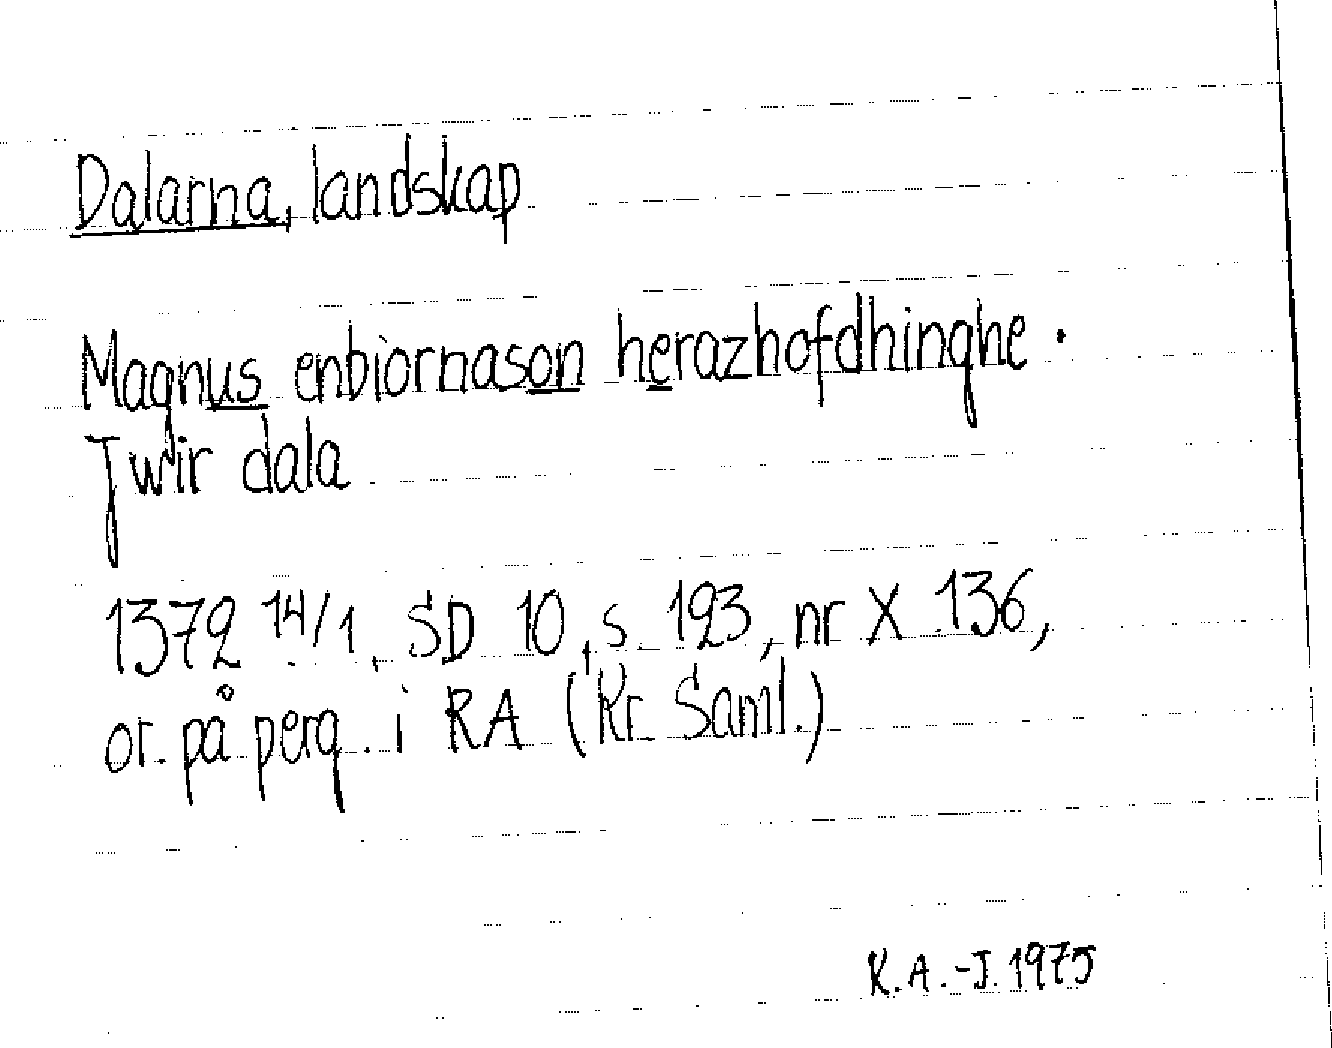 Dalarna, landskap
Magnus enbiornason herazhofdhinghe .
Jwir dala
1372 14/1, SD 10, s. 123, nr X 136,
or. på perg. i RA (Kr. Saml.)
K.A.-J. 1975